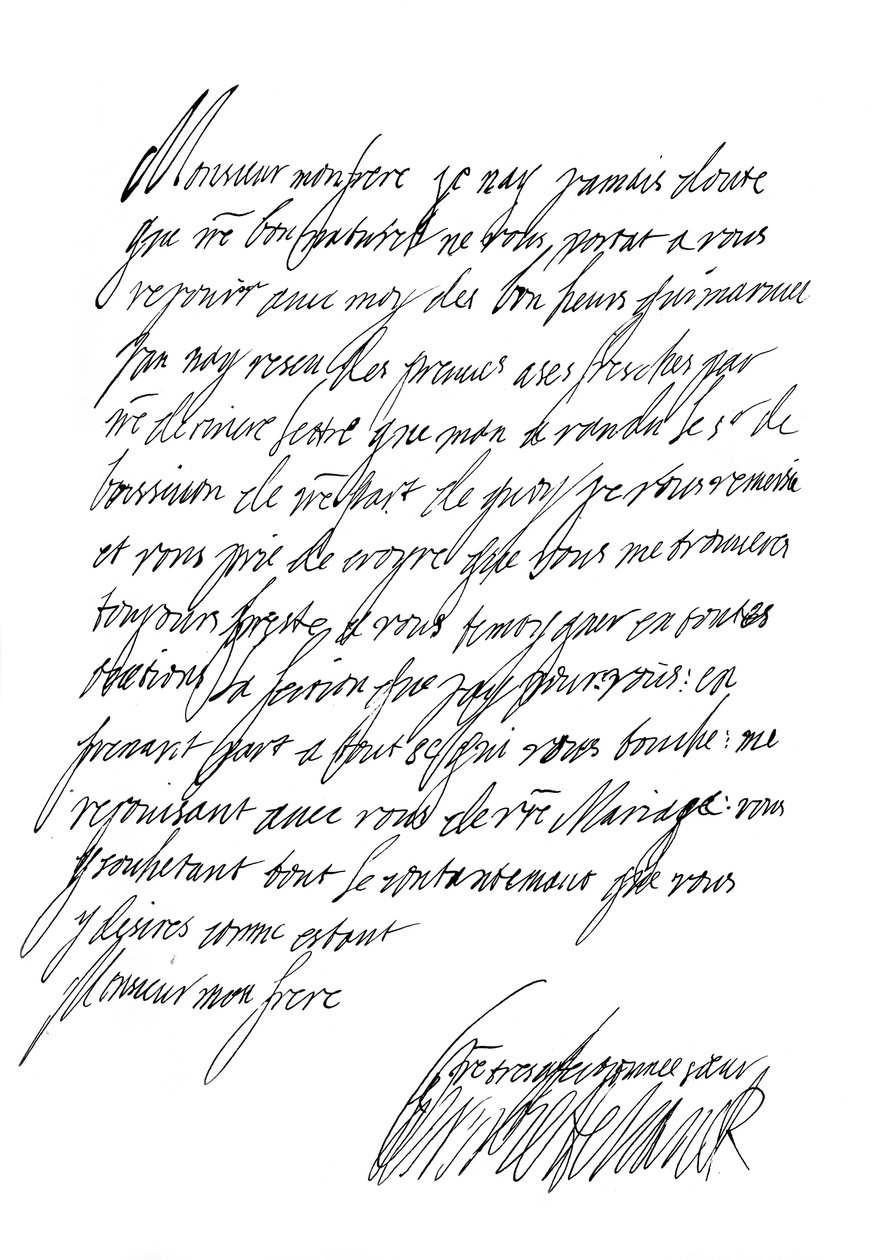 Monsieur mon frere je nay jamais doute
que vr̄e bon naturel ne vous portat a vous
rejouir avec moy des bon heurs qui marivet
Jan nay reseu des preuves ases fresches par
vr̄e derniere lettre que man a randu le sr de
boissinon de vr̄e part de quoy je vous remersie
et vous prie de croyre que vous me trouveres
toujours preste a vous temoygner en toutes
ocations la fection que jay pour vous: en
prenant part a tout se qui vous touche: me
rejouisant avec vous de vr̄e Mariage: vous
y souhetant tout le contantemant que vous
y desires comme estant
Monsieur mon frere
vr̄e tres afectionnee sœur